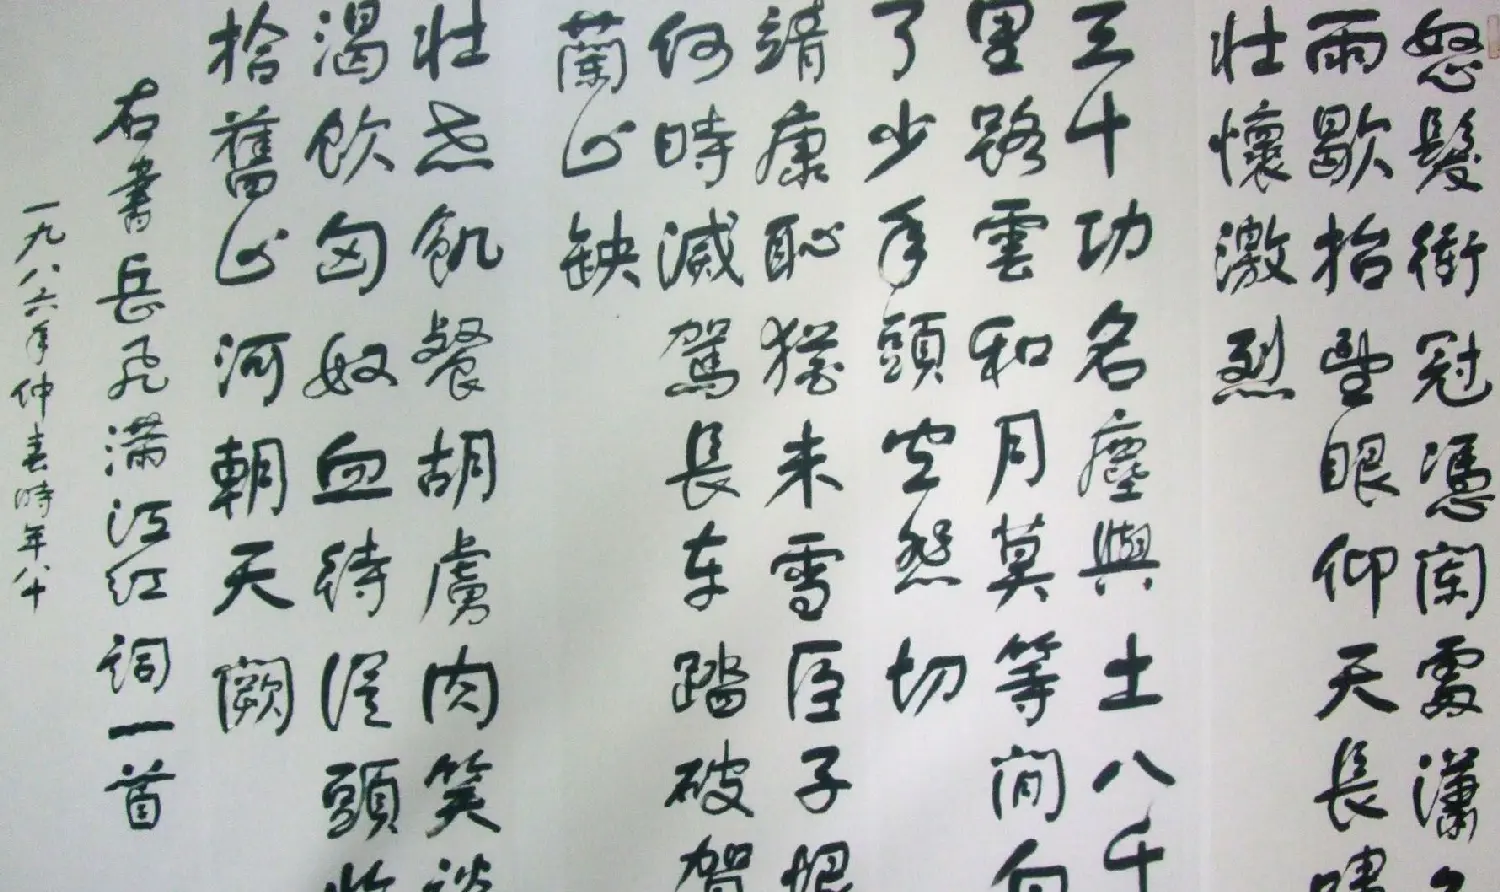 怒髮衝冠憑闌處瀟
雨歇抬望眼仰天長嘯
壯懷激烈
三十功名塵與土八千
里路雲和月莫等閒白
了少年頭空悲切
靖康恥猶未雪臣子恨
何時滅駕長车踏破賀
蘭山缺
壯志飢餐胡虜肉笑談
渴飲匈奴血待從頭收
拾舊山河朝天闕
右書岳飛滿江红詞一首
一九八六年仲春時年八十